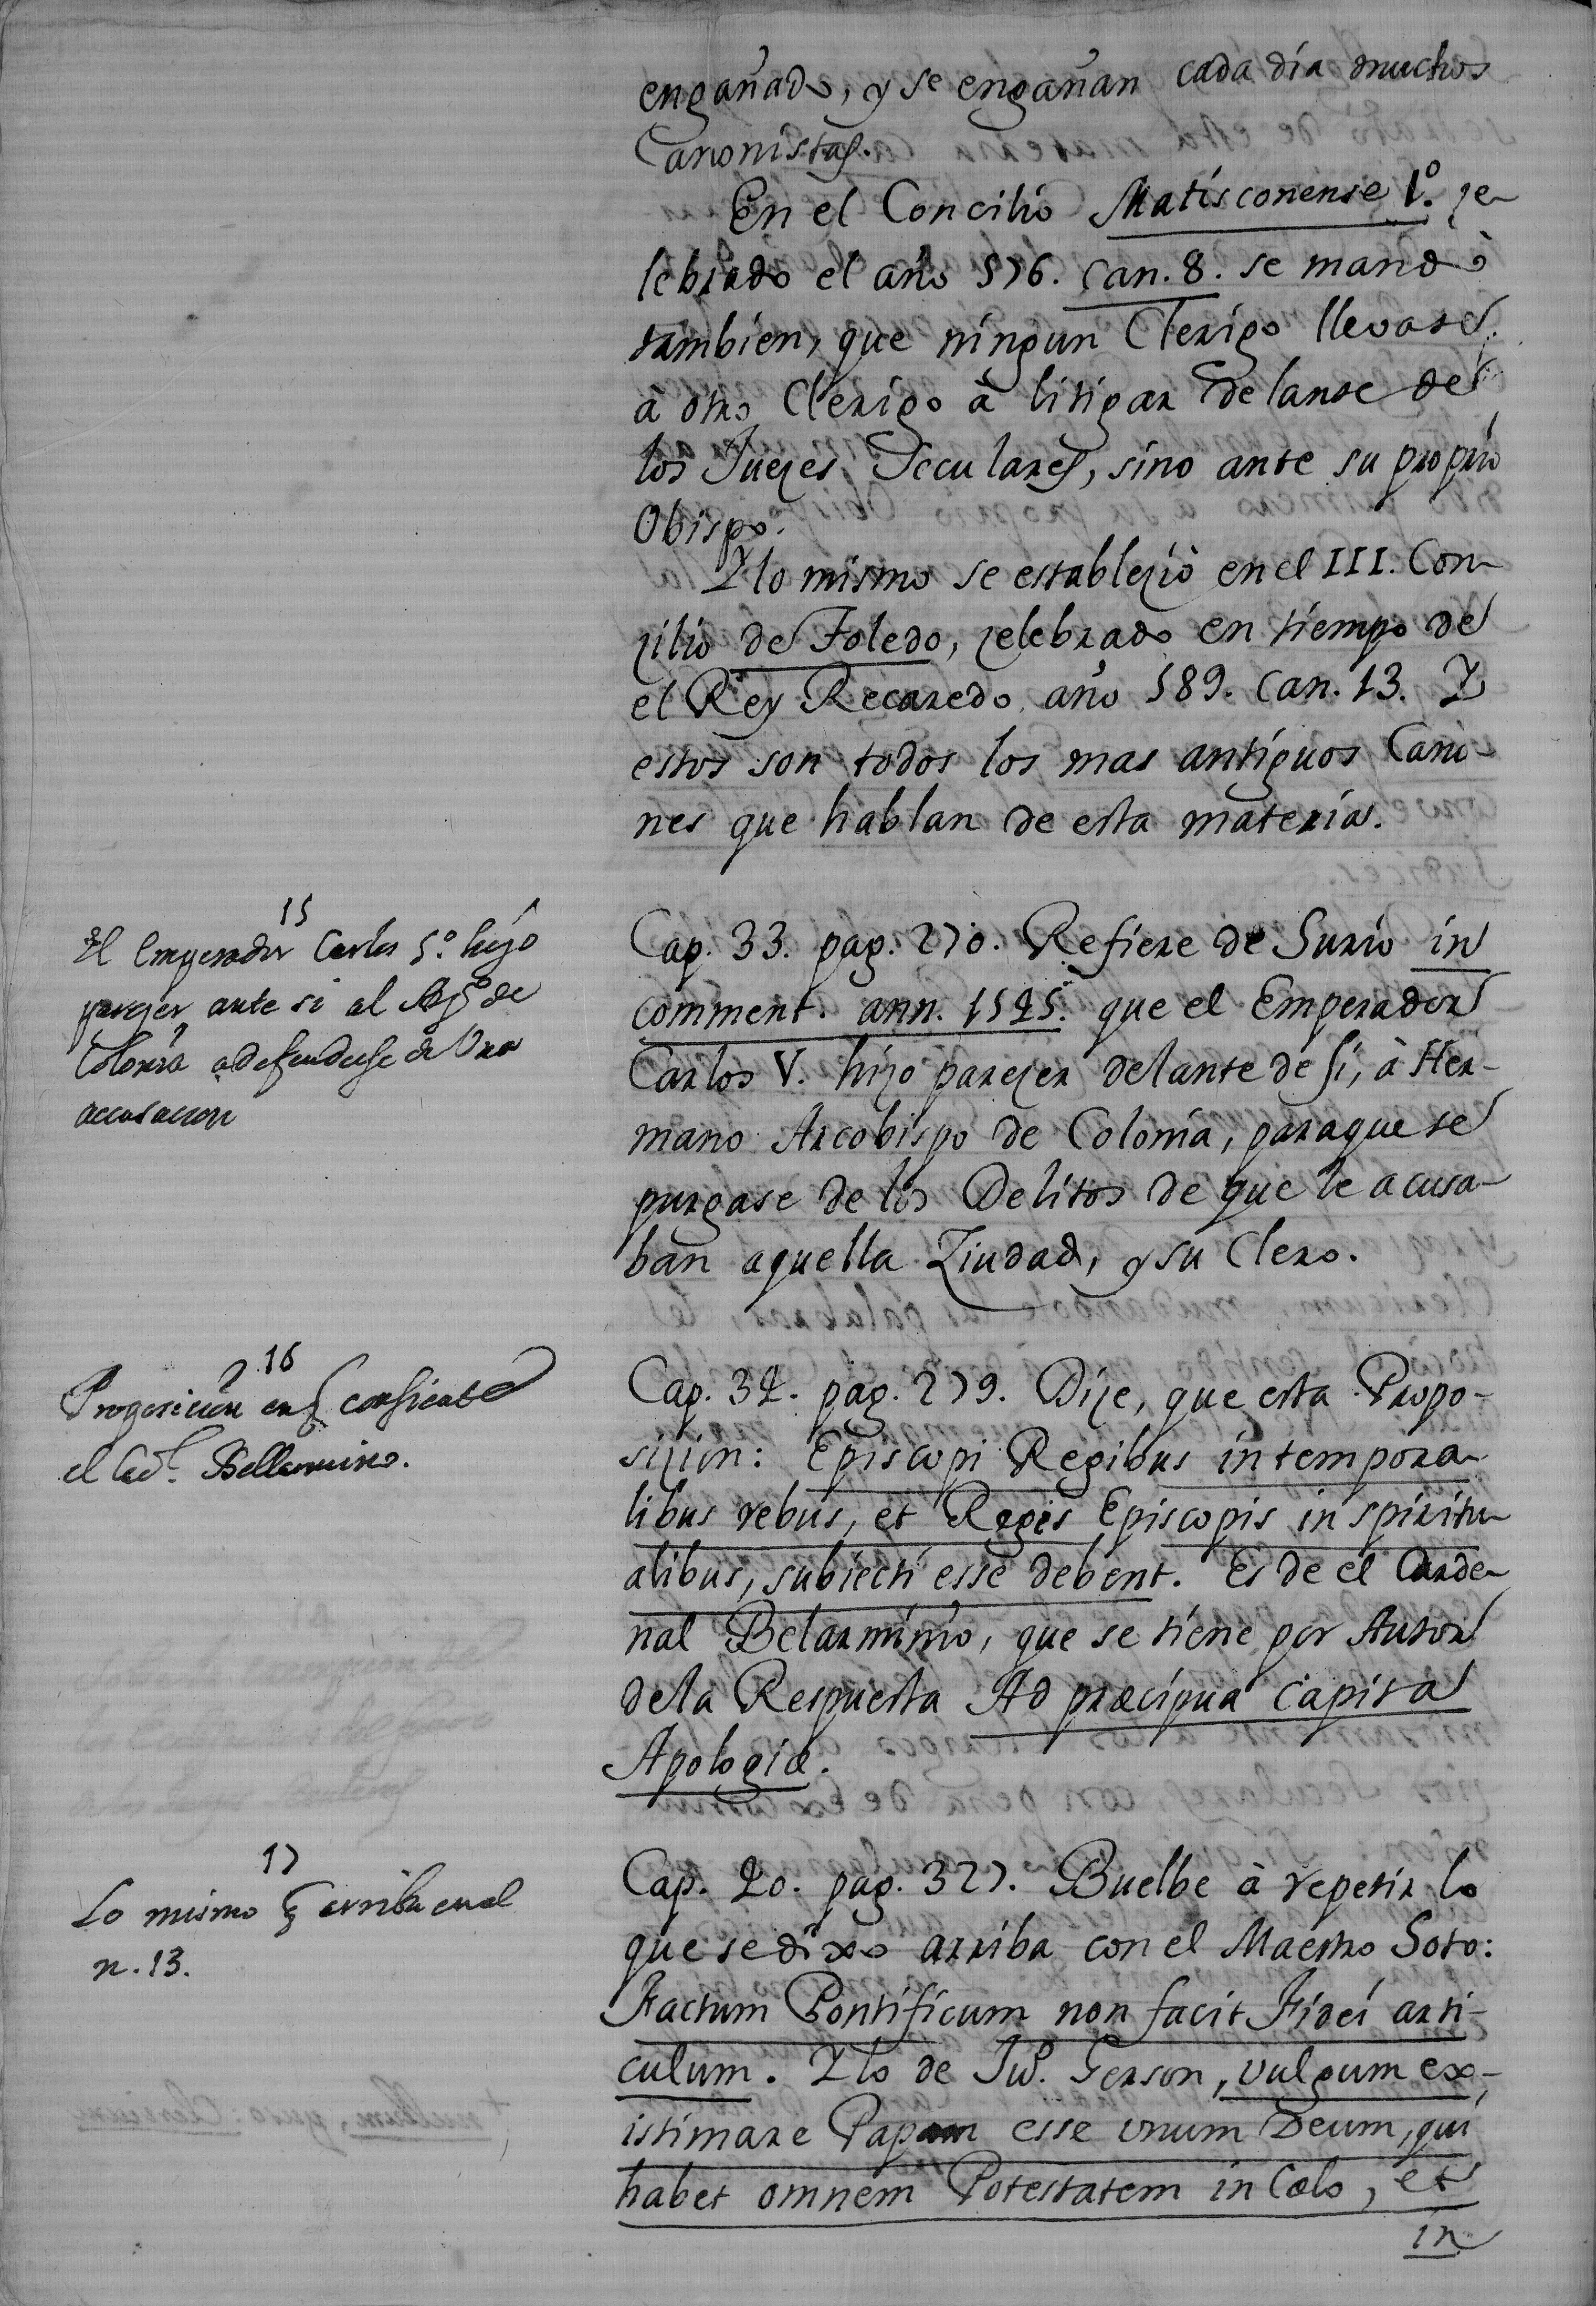 engañado, y se engañan cada dia muchos
Canonistas.
En el Concilio Matisconense 1.º ze-
lebrado el año 576. Can. 8. se mandò
tambien, que ningun Clerigo llevase
à otro Clerigo à litigar delante de
los Juezes Seculares, sino ante su proprio
Obispo.
Y lo mismo se establezió en el III. Con-
zilio de Toledo, zelebrado en tiempo de
el Rey Recaredo año 589. Can. 13. Y
estos son todos los mas antiguos Cano-
nes que hablan de esta materia.
15
El Emperador Carlos 5.º hizo
parezer ante si al Arzpº de
Colonia a defenderse de Una
accusacion
Cap. 33. pag. 270. Refiere de Surio in
comment. ann. 1545. que el Emperador
Carlos V. hizo parezer delante de si, à Her-
mano Arcobispo de Colonia, paraque se
purgase de los Delitos de que le acusa-
ban aquella Ziudad, y su Clero.
16
Proposicion en q consiente
el Cadˡ. Bellarmino.
Cap. 34. pag. 279. Dize, que esta Propo-
sizion: Episcopi Regibus in tempora-
libus rebus, et Reges Episcopis in spiritu-
alibus, subiecti esse debent. Es de el Carde-
nal Belarminio, que se tiene por Autor
dela Respuesta Ad præcipua capita
Apologiæ.
17
Lo mismo q arriba en el
n. 13.
Cap. 40. pag. 327. Buelbe à repetir lo
que se dixo arriba con el Maestro Soto:
Factum Pontificum non facit Fidei arti-
culum. Y lo de Juº. Gerson, vulgum ex-
istimare Papam esse unum Deum, qui
habet omnem Potestatem in Cœlo, et
in